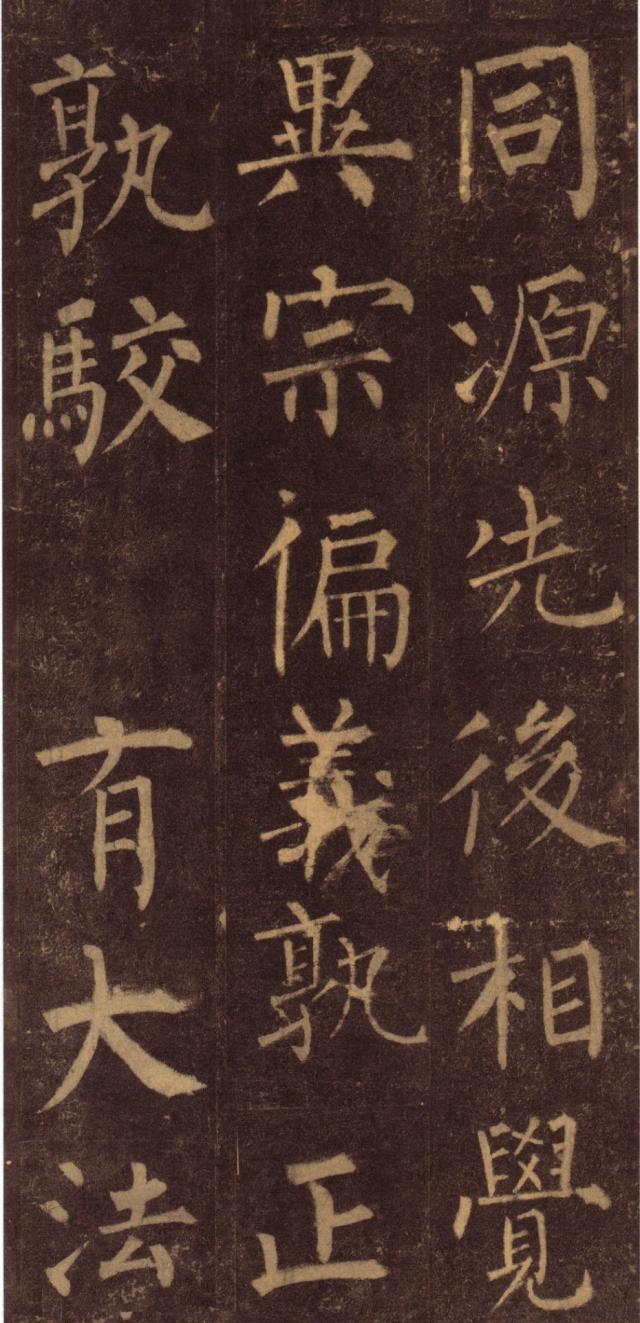 同源先後相覺
異宗偏義孰正
孰駮有大法